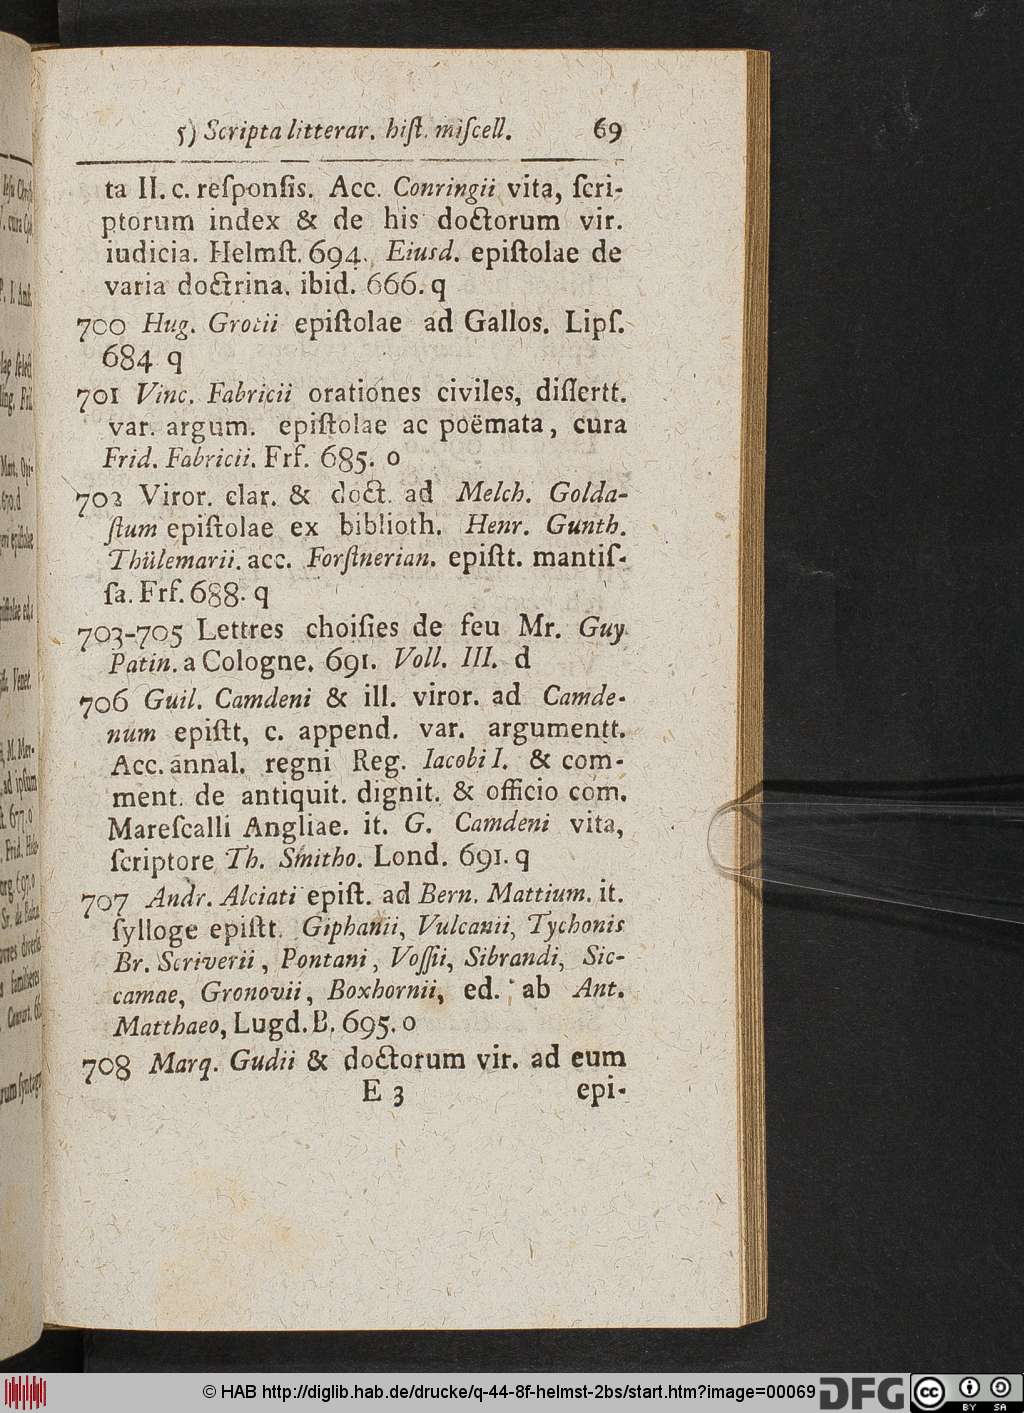 5) Scripta litterar. hiſt. miſcell. 69
ta II. c. reſponſis. Acc. Conringii vita, ſcri-
ptorum index & de his doctorum vir.
iudicia. Helmſt. 694. Eiusd. epiſtolae de
varia doctrina. ibid. 666. q
700 Hug. Grotii epiſtolae ad Gallos. Lipſ.
684 q
701 Vinc. Fabricii orationes civiles, diſſertt.
var. argum. epiſtolae ac poëmata, cura
Frid. Fabricii. Frf. 685. o
702 Viror. clar. & doct. ad Melch. Golda-
ſtum epiſtolae ex biblioth. Henr. Gunth.
Thülemarii. acc. Forſtnerian. epiſtt. mantiſ-
ſa. Frf. 688. q
703-705 Lettres choiſies de feu Mr. Guy
Patin. a Cologne. 691. Voll. III. d
706 Guil. Camdeni & ill. viror. ad Camde-
num epiſtt, c. append. var. argumentt.
Acc. annal. regni Reg. Iacobi I. & com-
ment. de antiquit. dignit. & officio com.
Mareſcalli Angliae. it. G. Camdeni vita,
ſcriptore Th. Smitho. Lond. 691. q
707 Andr. Alciati epiſt. ad Bern. Mattium. it.
ſylloge epiſtt. Giphanii, Vulcanii, Tychonis
Br. Scriverii, Pontani, Voſſii, Sibrandi, Sic-
camae, Gronovii, Boxhornii, ed. ab Ant.
Matthaeo, Lugd. B. 695. o
708 Marq. Gudii & doctorum vir. ad eum
E 3 epi-
© HAB http://diglib.hab.de/drucke/q-44-8f-helmst-2bs/start.htm?image=00069 DFG cc BY SA